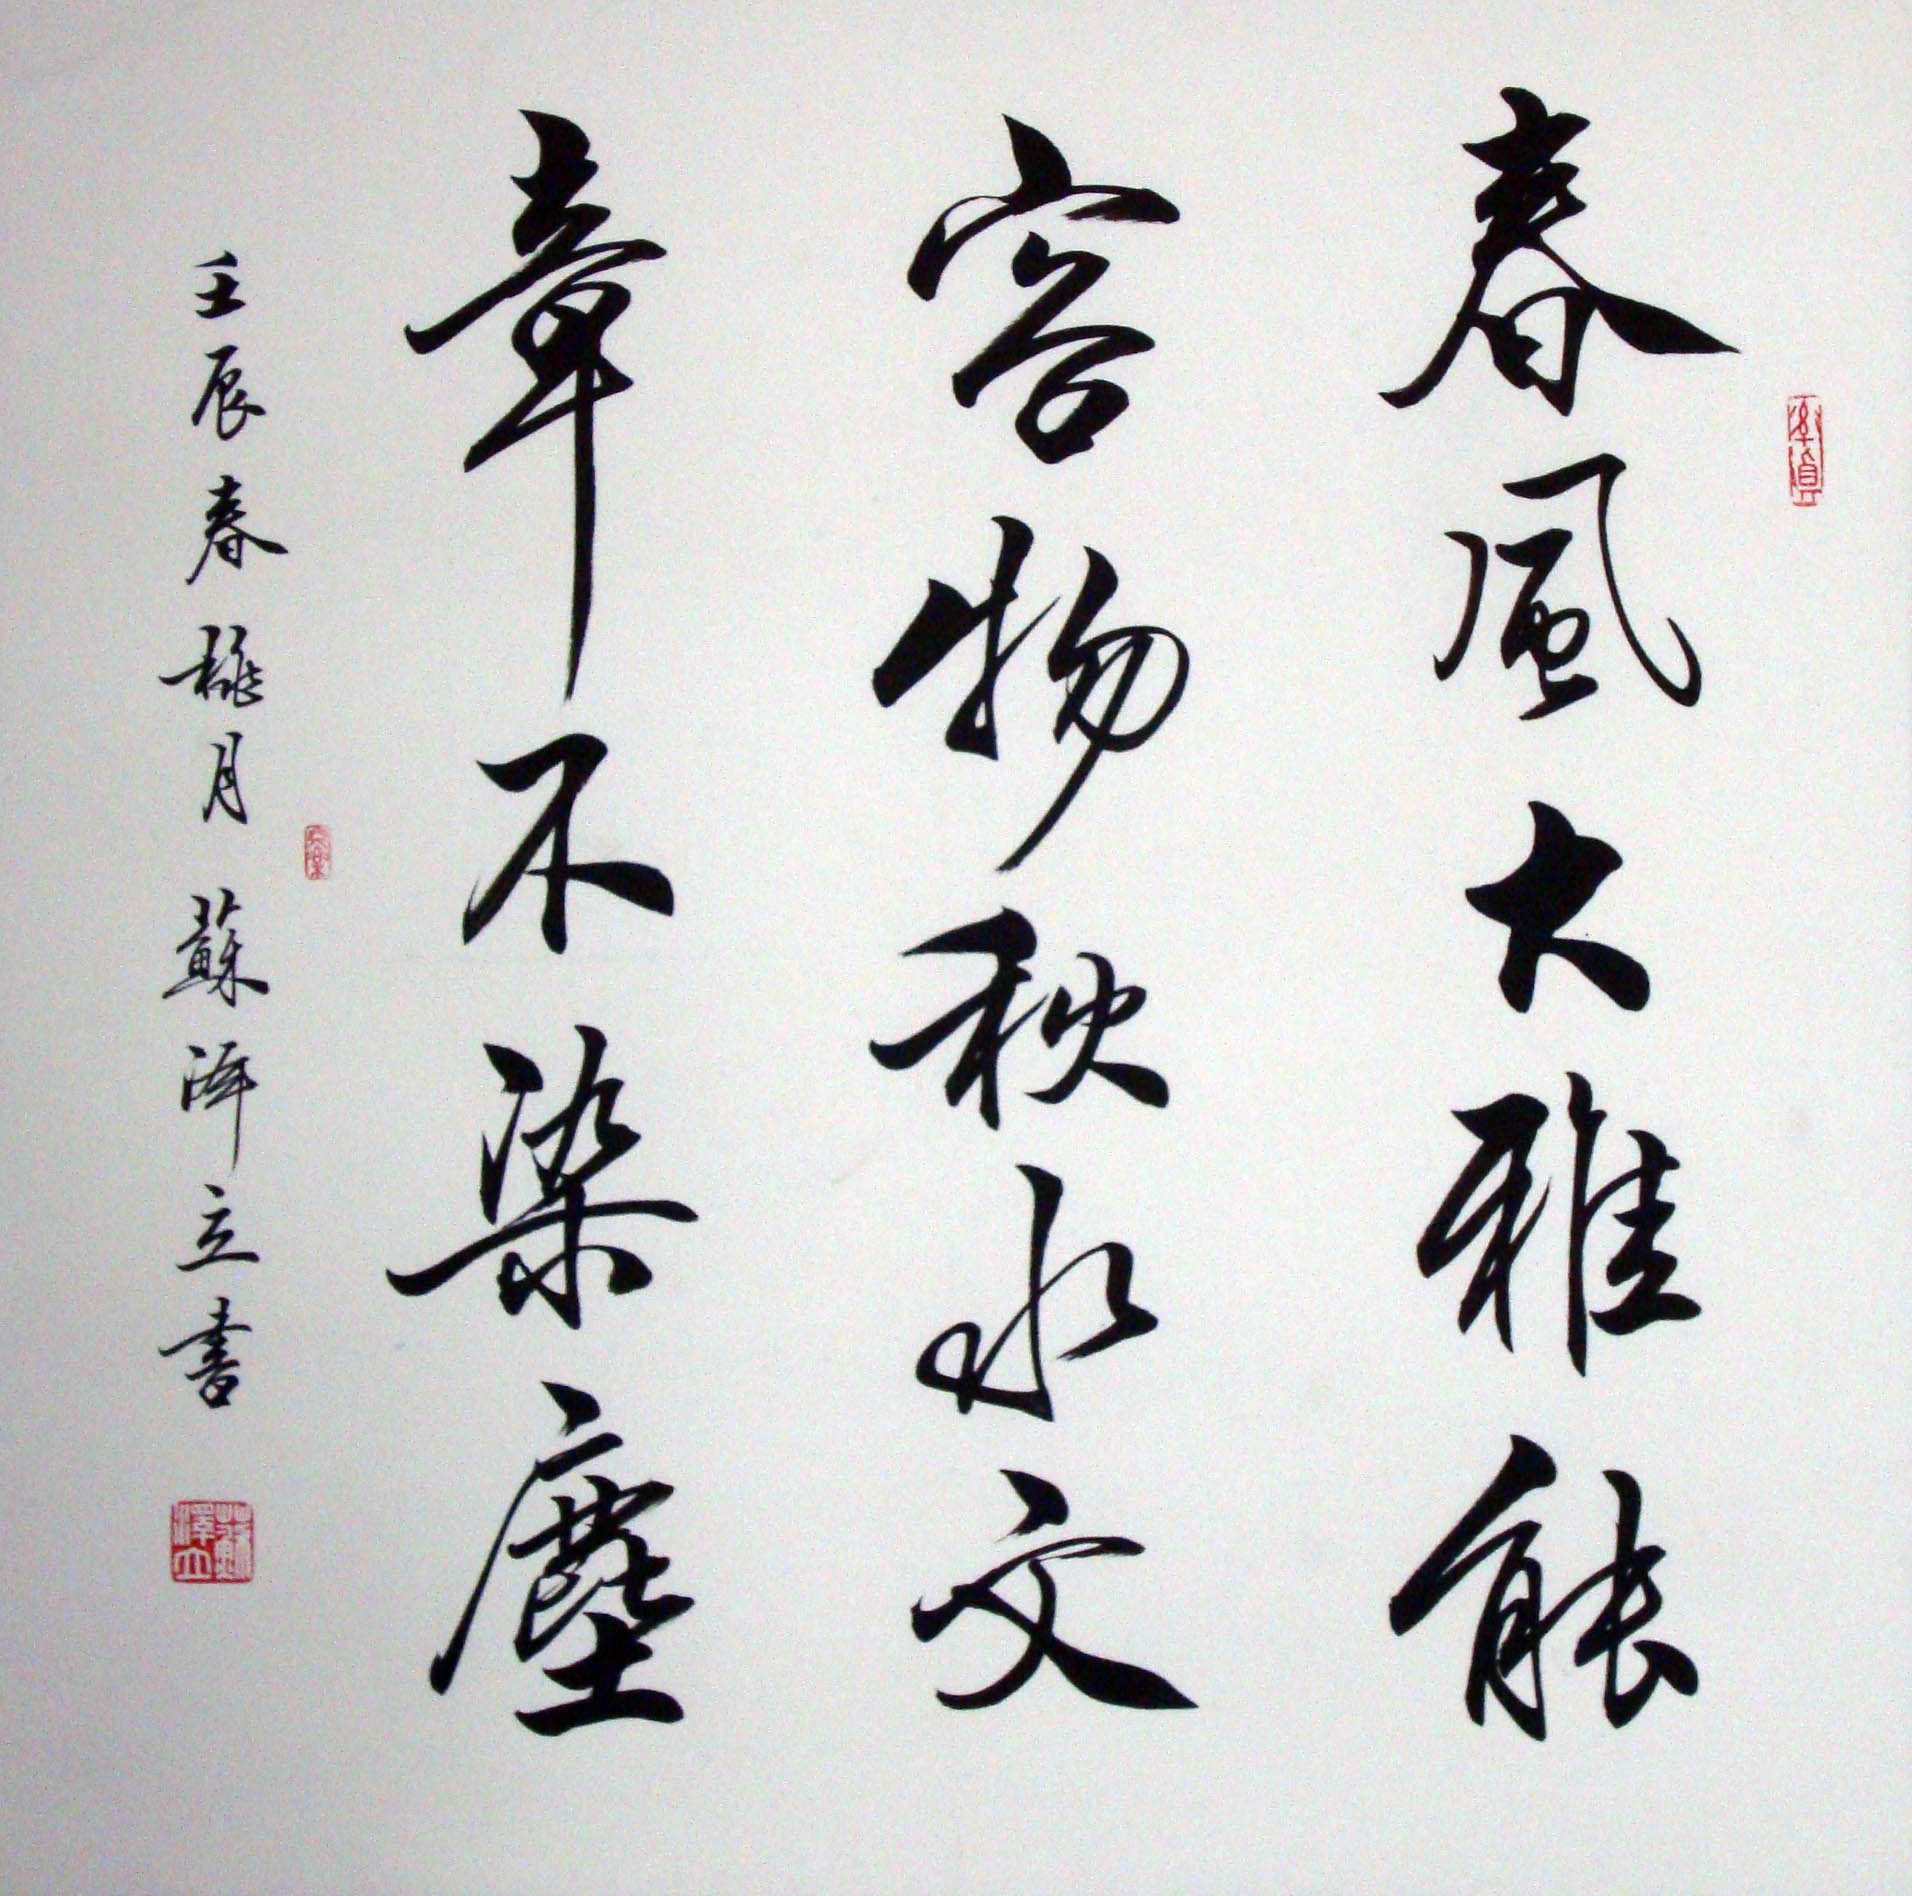 春風大雅能
容物秋水文
章不染塵
壬辰春桃月蘇澤立書
蘇澤立